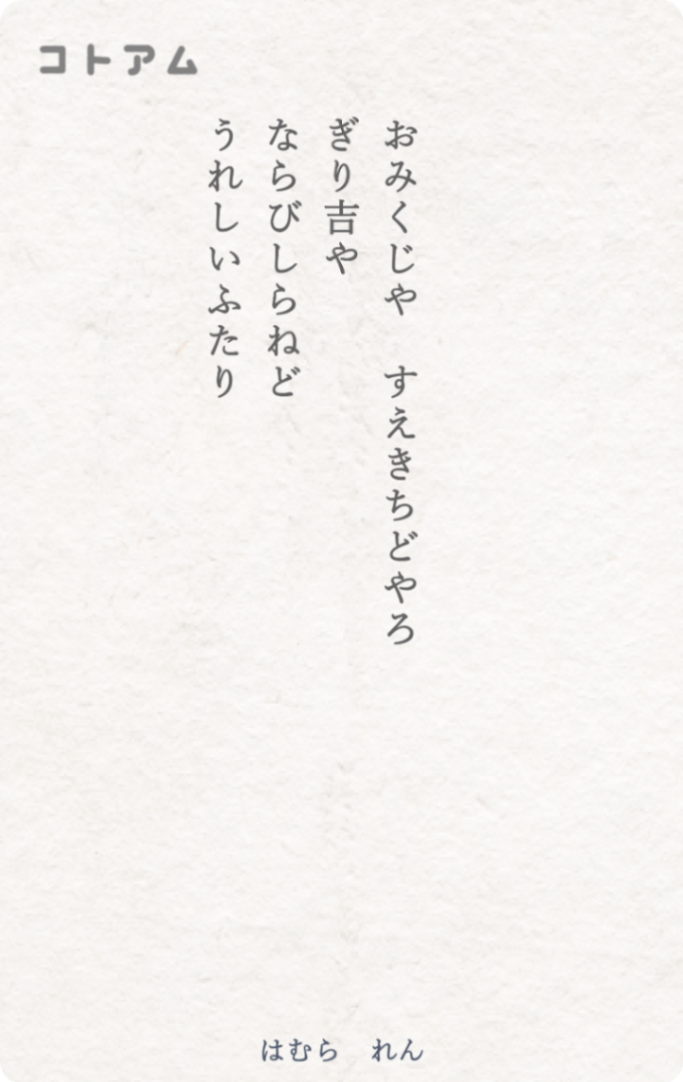 コトアム
おみくじや　すえきちどやろ
ぎり吉や
ならびしらねど
うれしいふたり
はむら　れん